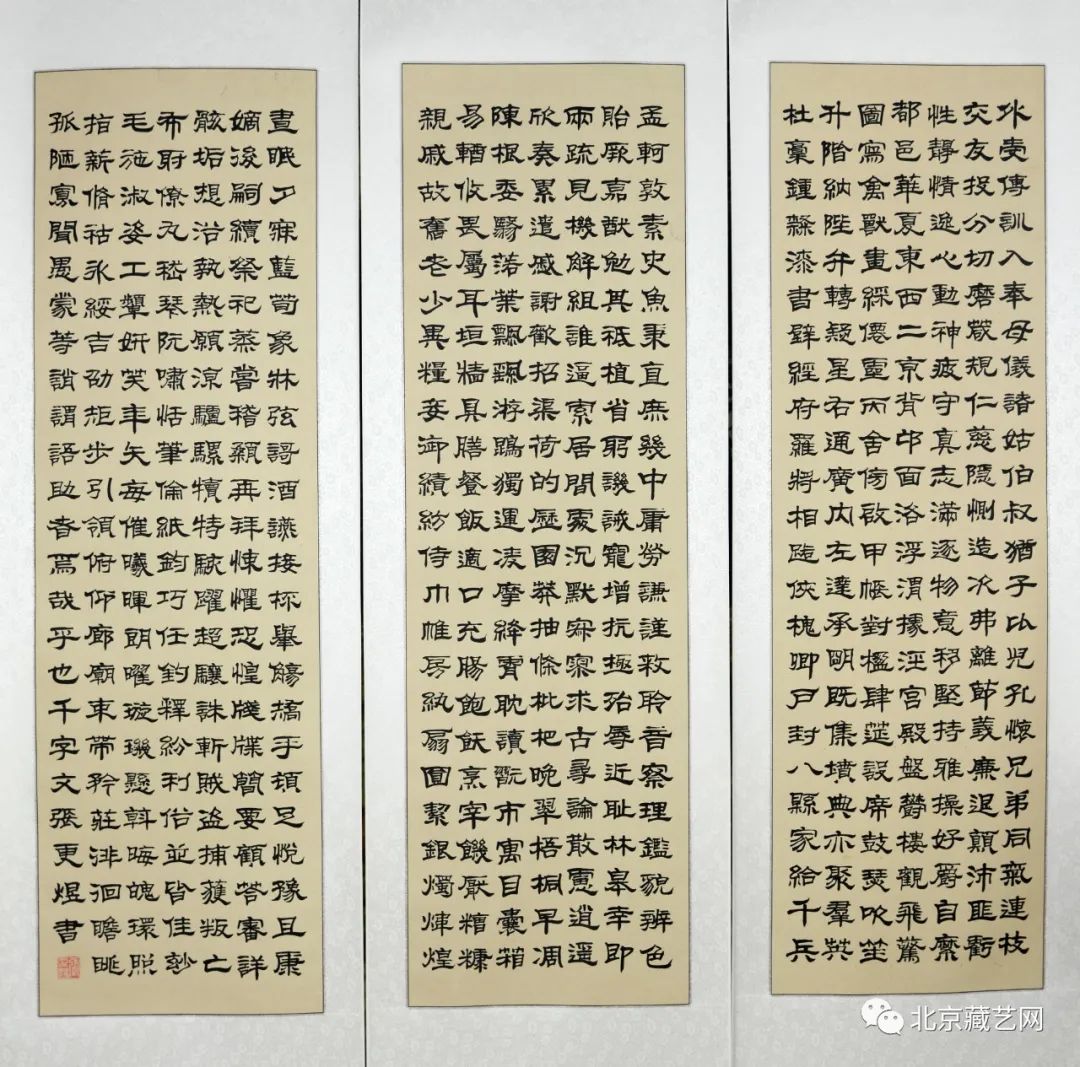 外受傅訓入奉母儀諸姑伯叔猶子比兒孔懷兄弟同氣連枝
交友投分切磨箴規仁慈隱惻造次弗離節義廉退顛沛匪虧
性靜情逸心動神疲守真志滿逐物意移堅持雅操好爵自縻
都邑華夏東西二京背邙面洛浮渭據涇宮殿盤鬱樓觀飛驚
圖寫禽獸畫綵僊靈丙舍傍啟甲帳對楹肆筵設席鼓瑟吹笙
升階納陛弁轉疑星右通廣內左達承明既集墳典亦聚羣英
杜稾鍾隸漆書壁經府羅將相路俠槐卿戶封八縣家給千兵
孟軻敦素史魚秉直庶幾中庸勞謙謹敕聆音察理鑑貌辨色
貽厥嘉猷勉其祗植省躬譏誡寵增抗極殆辱近恥林皋幸即
兩疏見機解組誰逼索居閒處沉默寂寥求古尋論散慮逍遙
欣奏累遣慼謝歡招渠荷的歷園莽抽條枇杷晚翠梧桐早凋
陳根委翳落葉飄颻游鵾獨運凌摩絳霄耽讀翫市寓目囊箱
易輶攸畏屬耳垣牆具膳餐飯適口充腸飽飫烹宰饑厭糟糠
親戚故舊老少異糧妾御績紡侍巾帷房紈扇圓絜銀燭煒煌
晝眠夕寐藍筍象牀弦謌酒讌接杯舉觴矯手頓足悅豫且康
嫡後嗣續祭祀蒸嘗稽顙再拜悚懼恐惶牋牒簡要顧答審詳
骸垢想浴執熱願涼驢騾犢特駭躍超驤誅斬賊盜捕獲叛亡
布射僚丸嵇琴阮嘯恬筆倫紙鈞巧任釣釋紛利俗並皆佳妙
毛施淑姿工顰妍笑年矢每催曦暉朗曜璇璣懸斡晦魄環照
指薪脩祜永綏吉劭矩步引領俯仰廊廟束帶矜莊徘徊瞻眺
孤陋寡聞愚蒙等誚謂語助者焉哉乎也千字文張更煜書
北京藏艺网